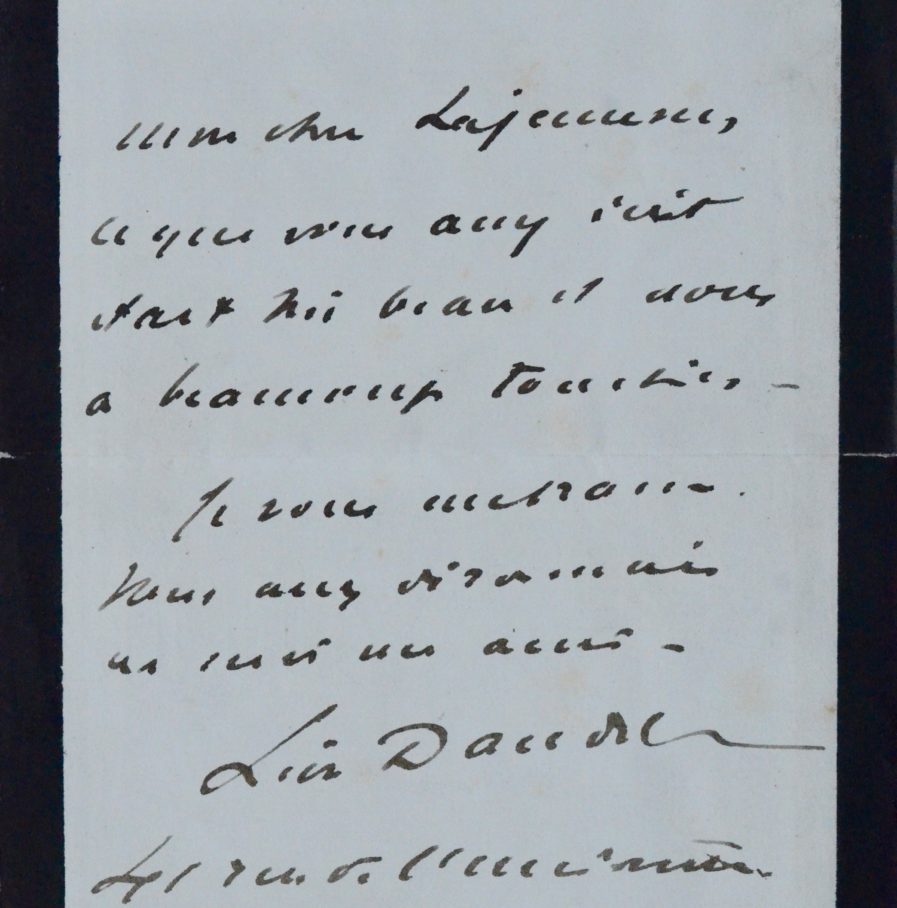 Mon cher Lajeunesse,
ce que vous avez écrit
était très beau et nous
a beaucoup touchés –
Je vous
Vous avez désormais
en moi un ami –
Léon Daudet
rue de l'université.